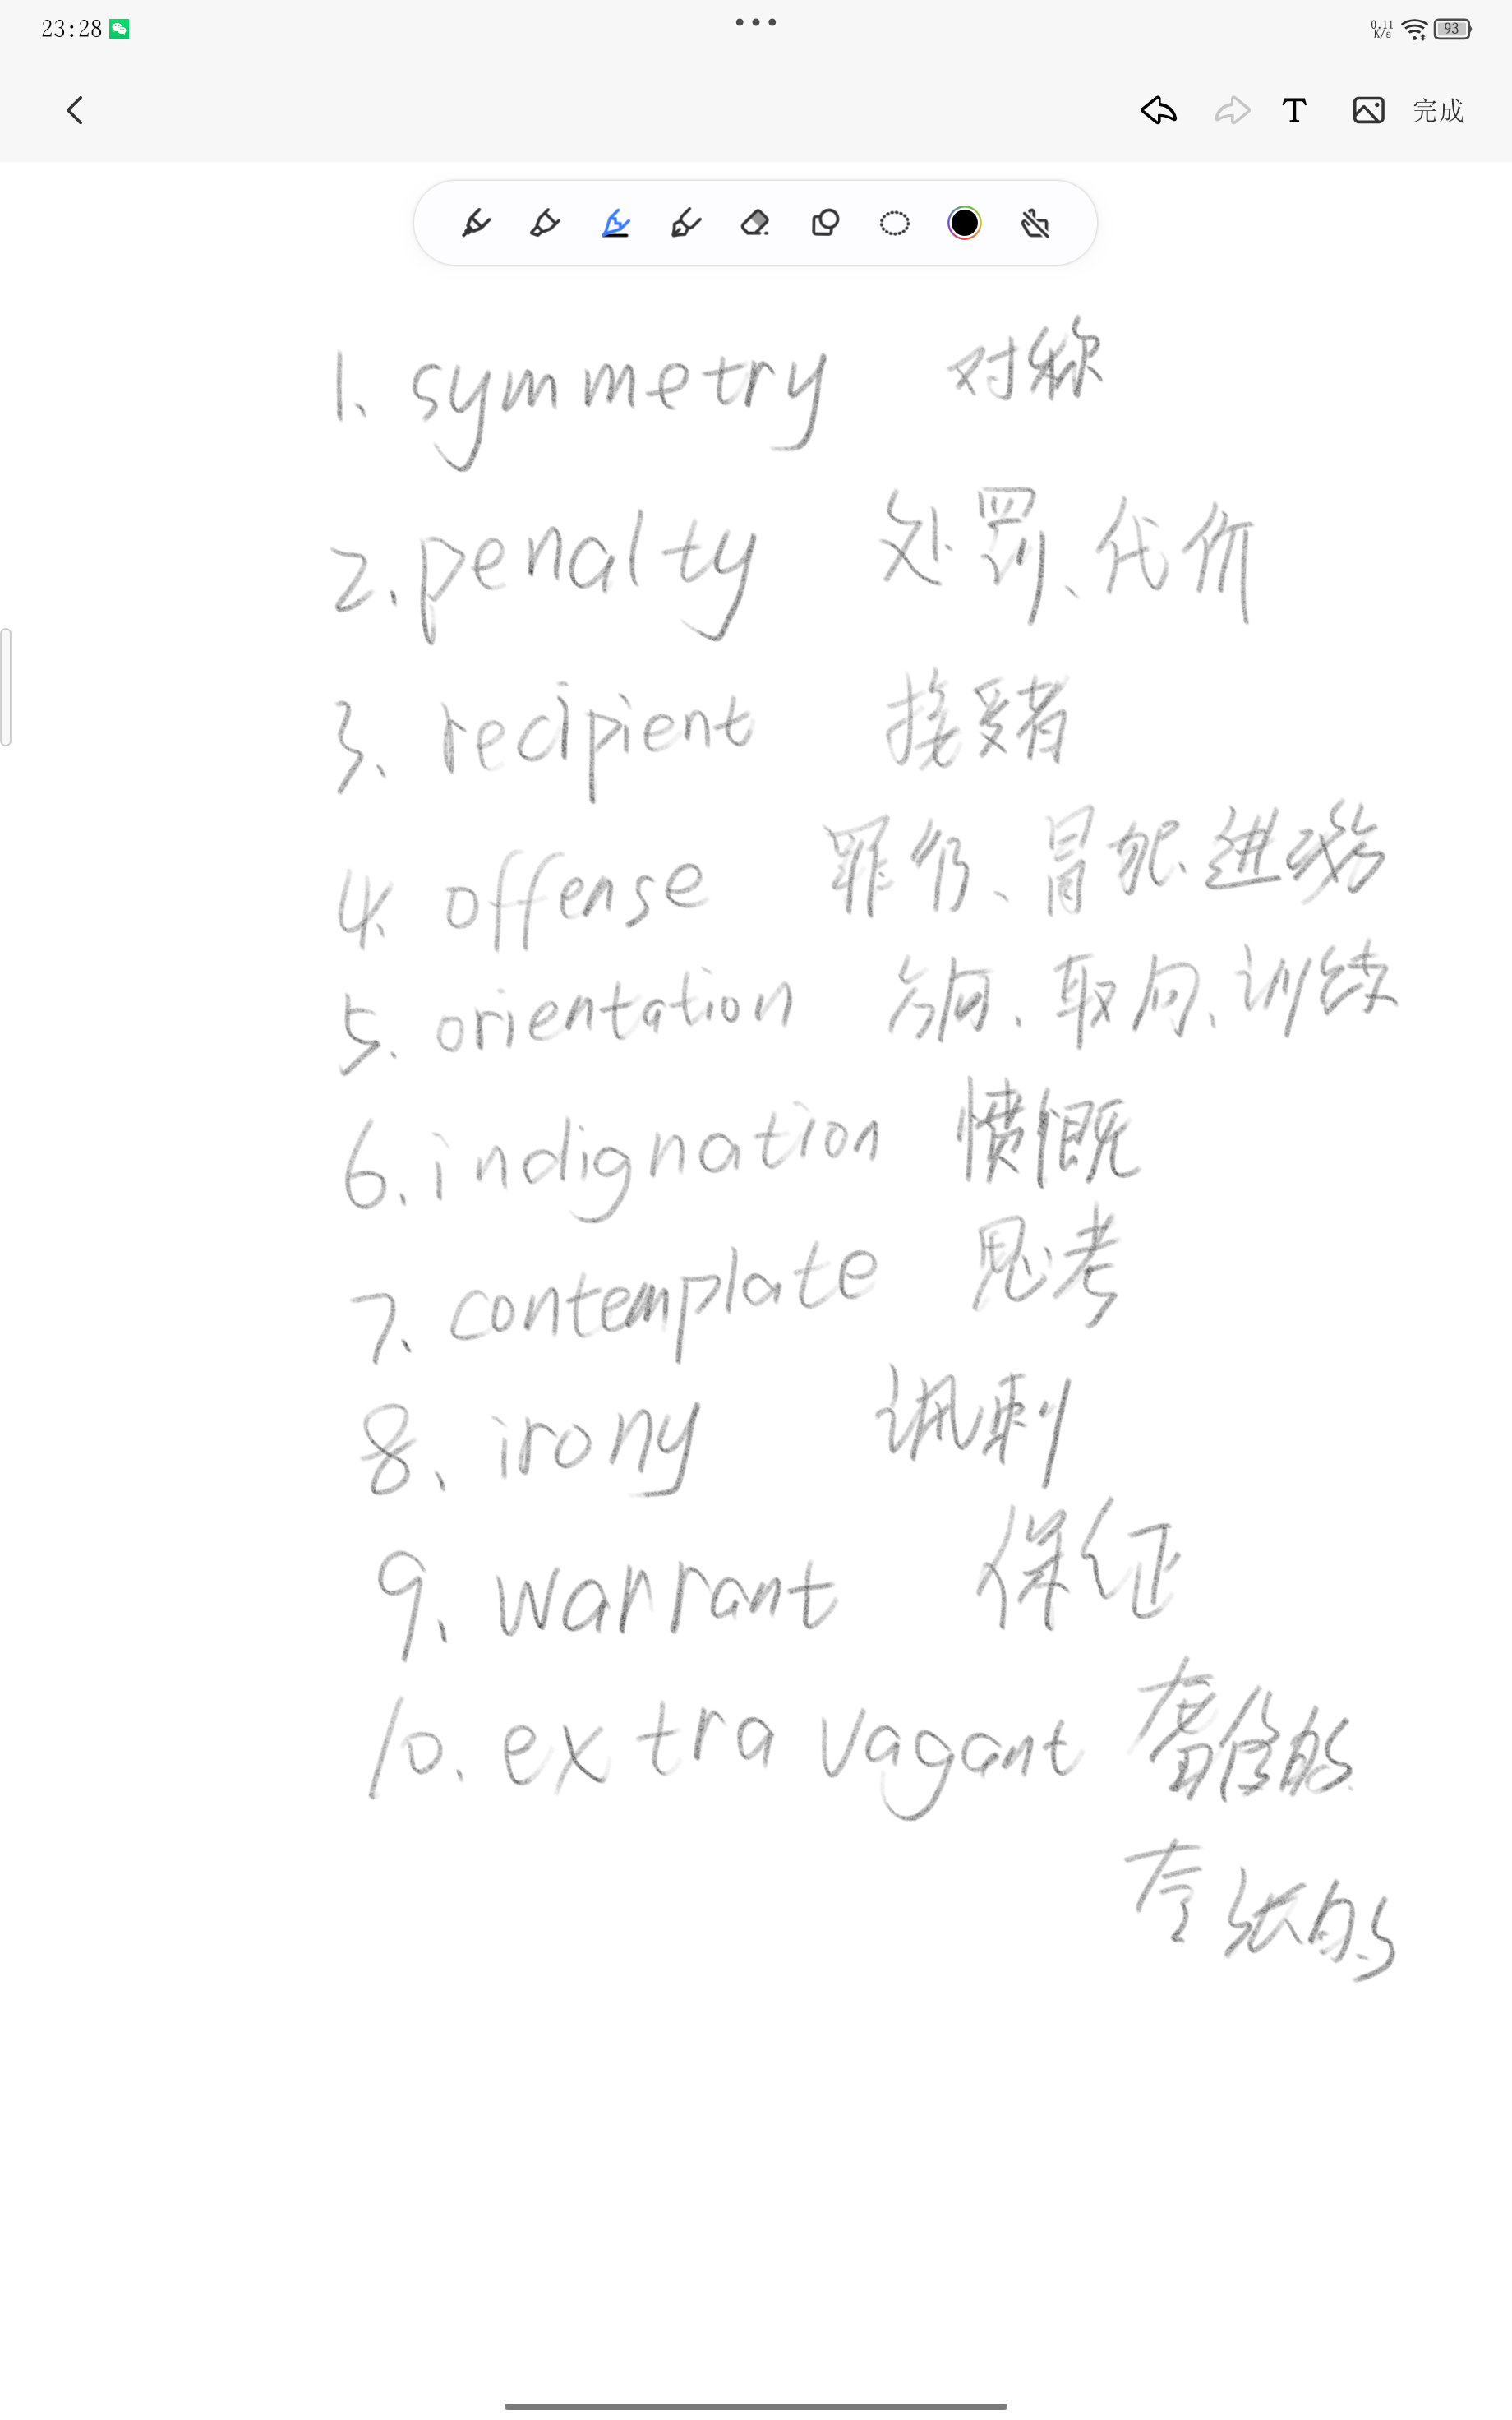 23:28
0.11 K/s
93
完成
1、symmetry 对称
2.penalty 处罚、代价
3、recipient 接受者
4. offense 罪行、冒犯、进攻
5. orientation 方向、取向、训练
6.indignation 愤慨
7、contemplate 思考
8、irony 讽刺
9、warrant 保证
10.extravagant 奢侈的
夸张的